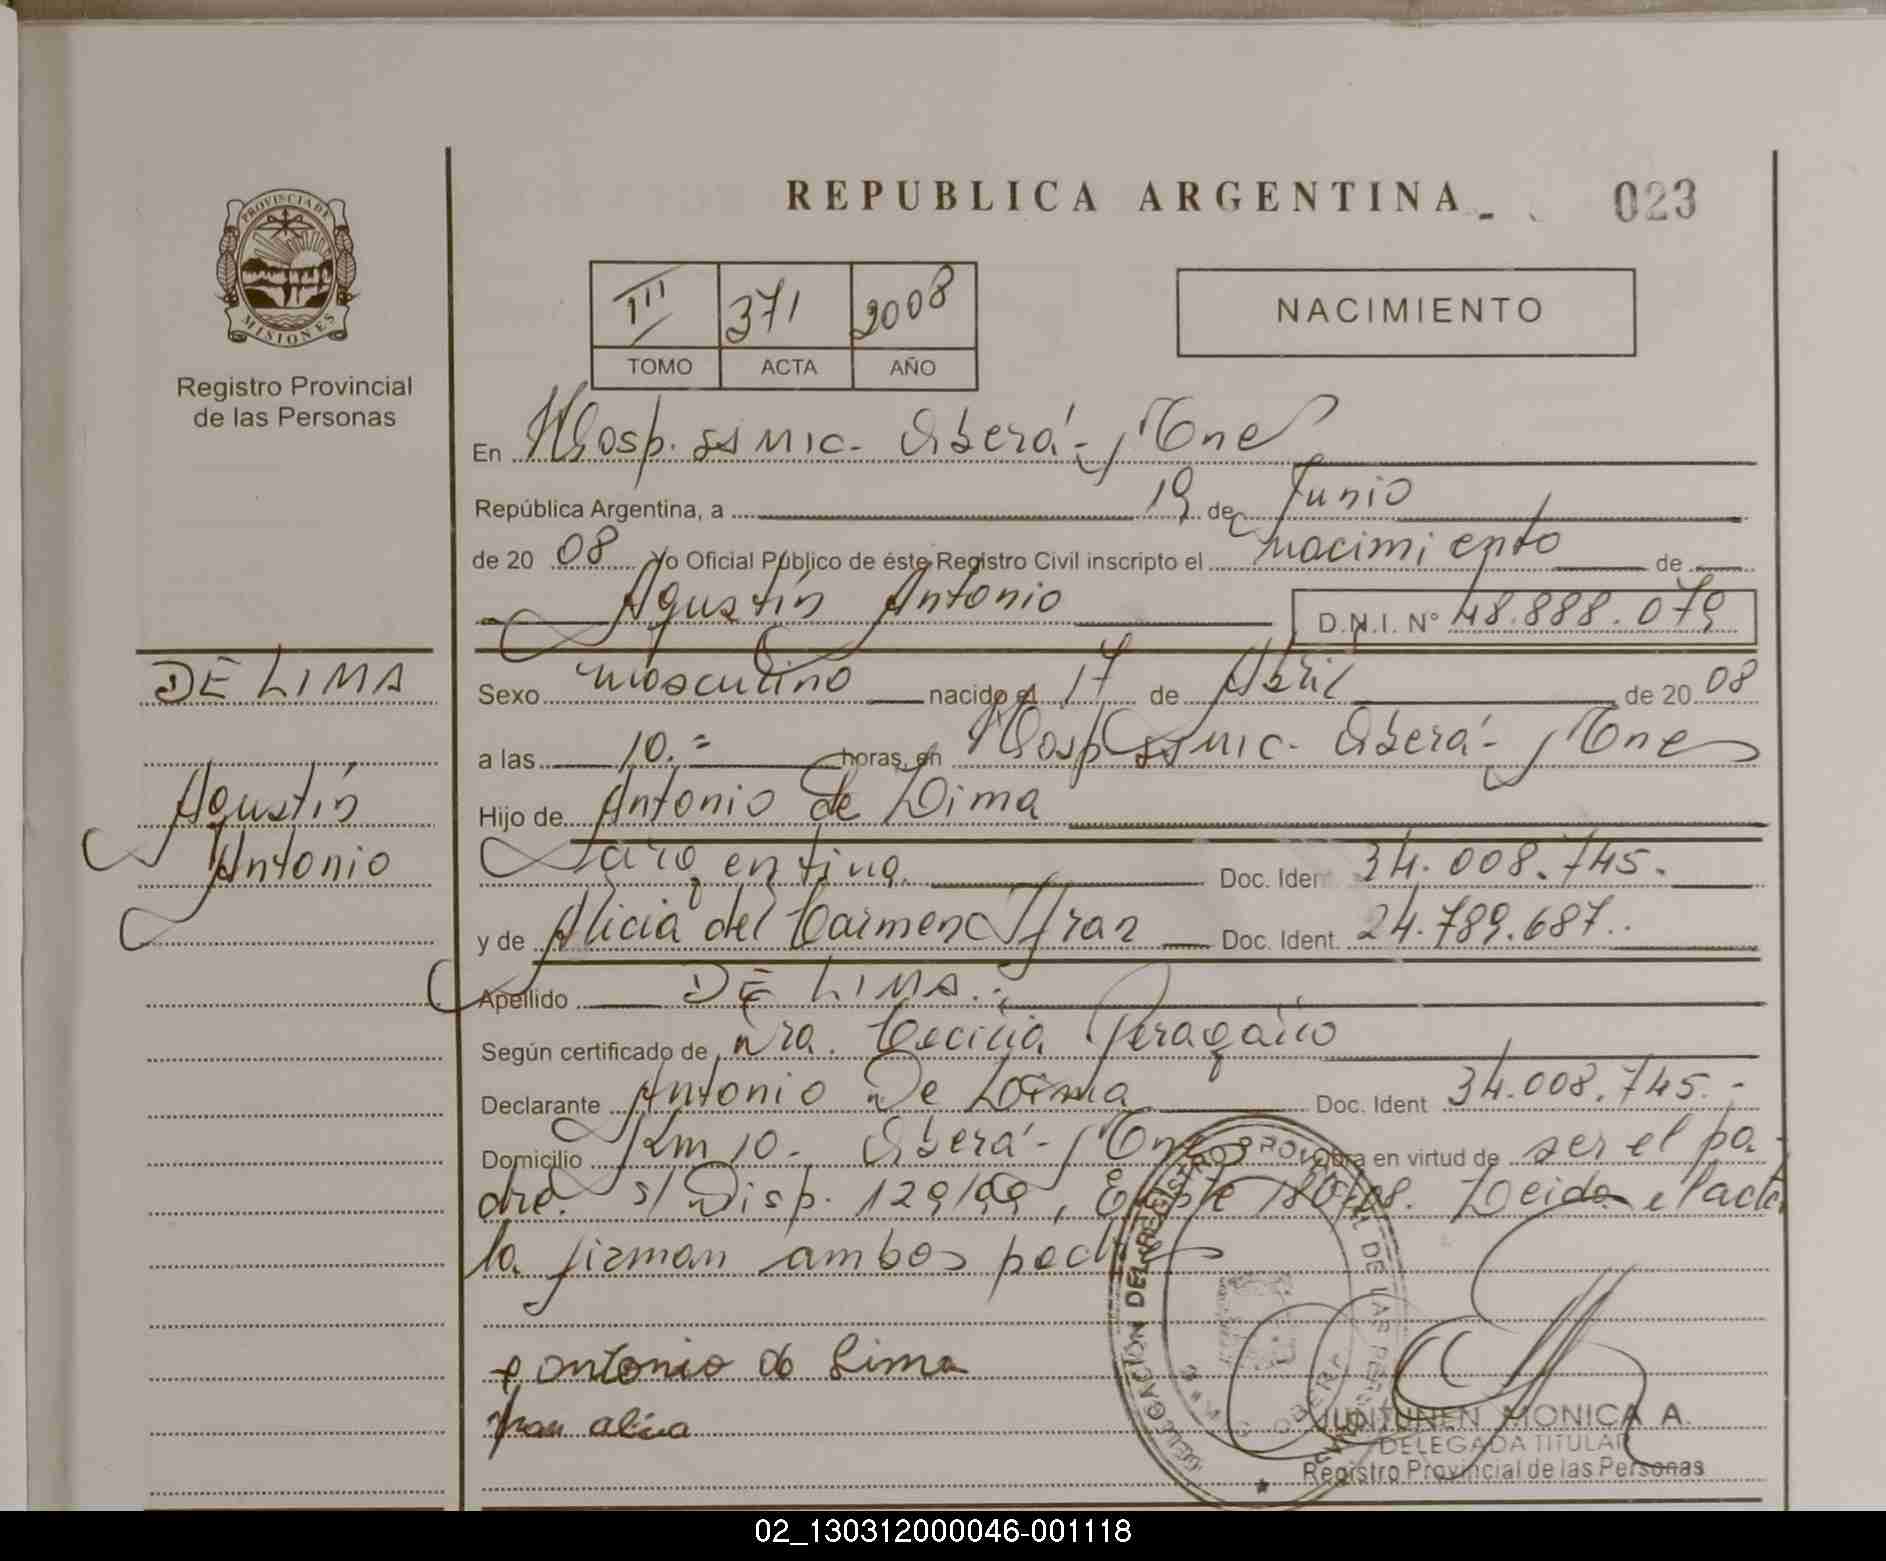 REPUBLICA ARGENTINA
023
PROVINCIA DE
MISIONES
Registro Provincial
de las Personas
III 371 2008
TOMO ACTA AÑO
NACIMIENTO
En Hosp. SS MIC. Oberá - Mnes
República Argentina, a 19 de Junio
de 20 08 Yo Oficial Público de éste Registro Civil inscripto el nacimiento de
Agustín Antonio D.N.I. Nº 48.888.079
DE LIMA
Agustín
Antonio
Sexo masculino nacido el 17 de Abril de 20 08
a las 10.= horas, en Hosp SS MIC. Oberá - Mnes
Hijo de Antonio de Lima
argentino. Doc. Ident. 34.008.745.
y de Alicia del Carmen Fran Doc. Ident. 24.789.687..
Apellido DE LIMA.-
Según certificado de Dra. Cecilia
Declarante Antonio De Lima Doc. Ident 34.008.745.-
Domicilio Km 10. Oberá - Mnes Obra en virtud de ser el pa-
dre. s/ Disp. 129/99, Expte 180/08. Leida el acta
la firman ambos padres
Antonio de Lima
Fran alicia
DELEGACION DEL REGISTRO PROVINCIAL DE LAS PERSONAS
OBERA
JUNTUNEN MONICA A.
DELEGADA TITULAR
Registro Provincial de las Personas
02_130312000046-001118